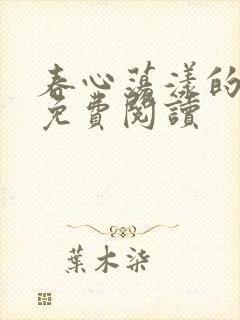 春心蕩漾的
免費閱讀
葉木柒